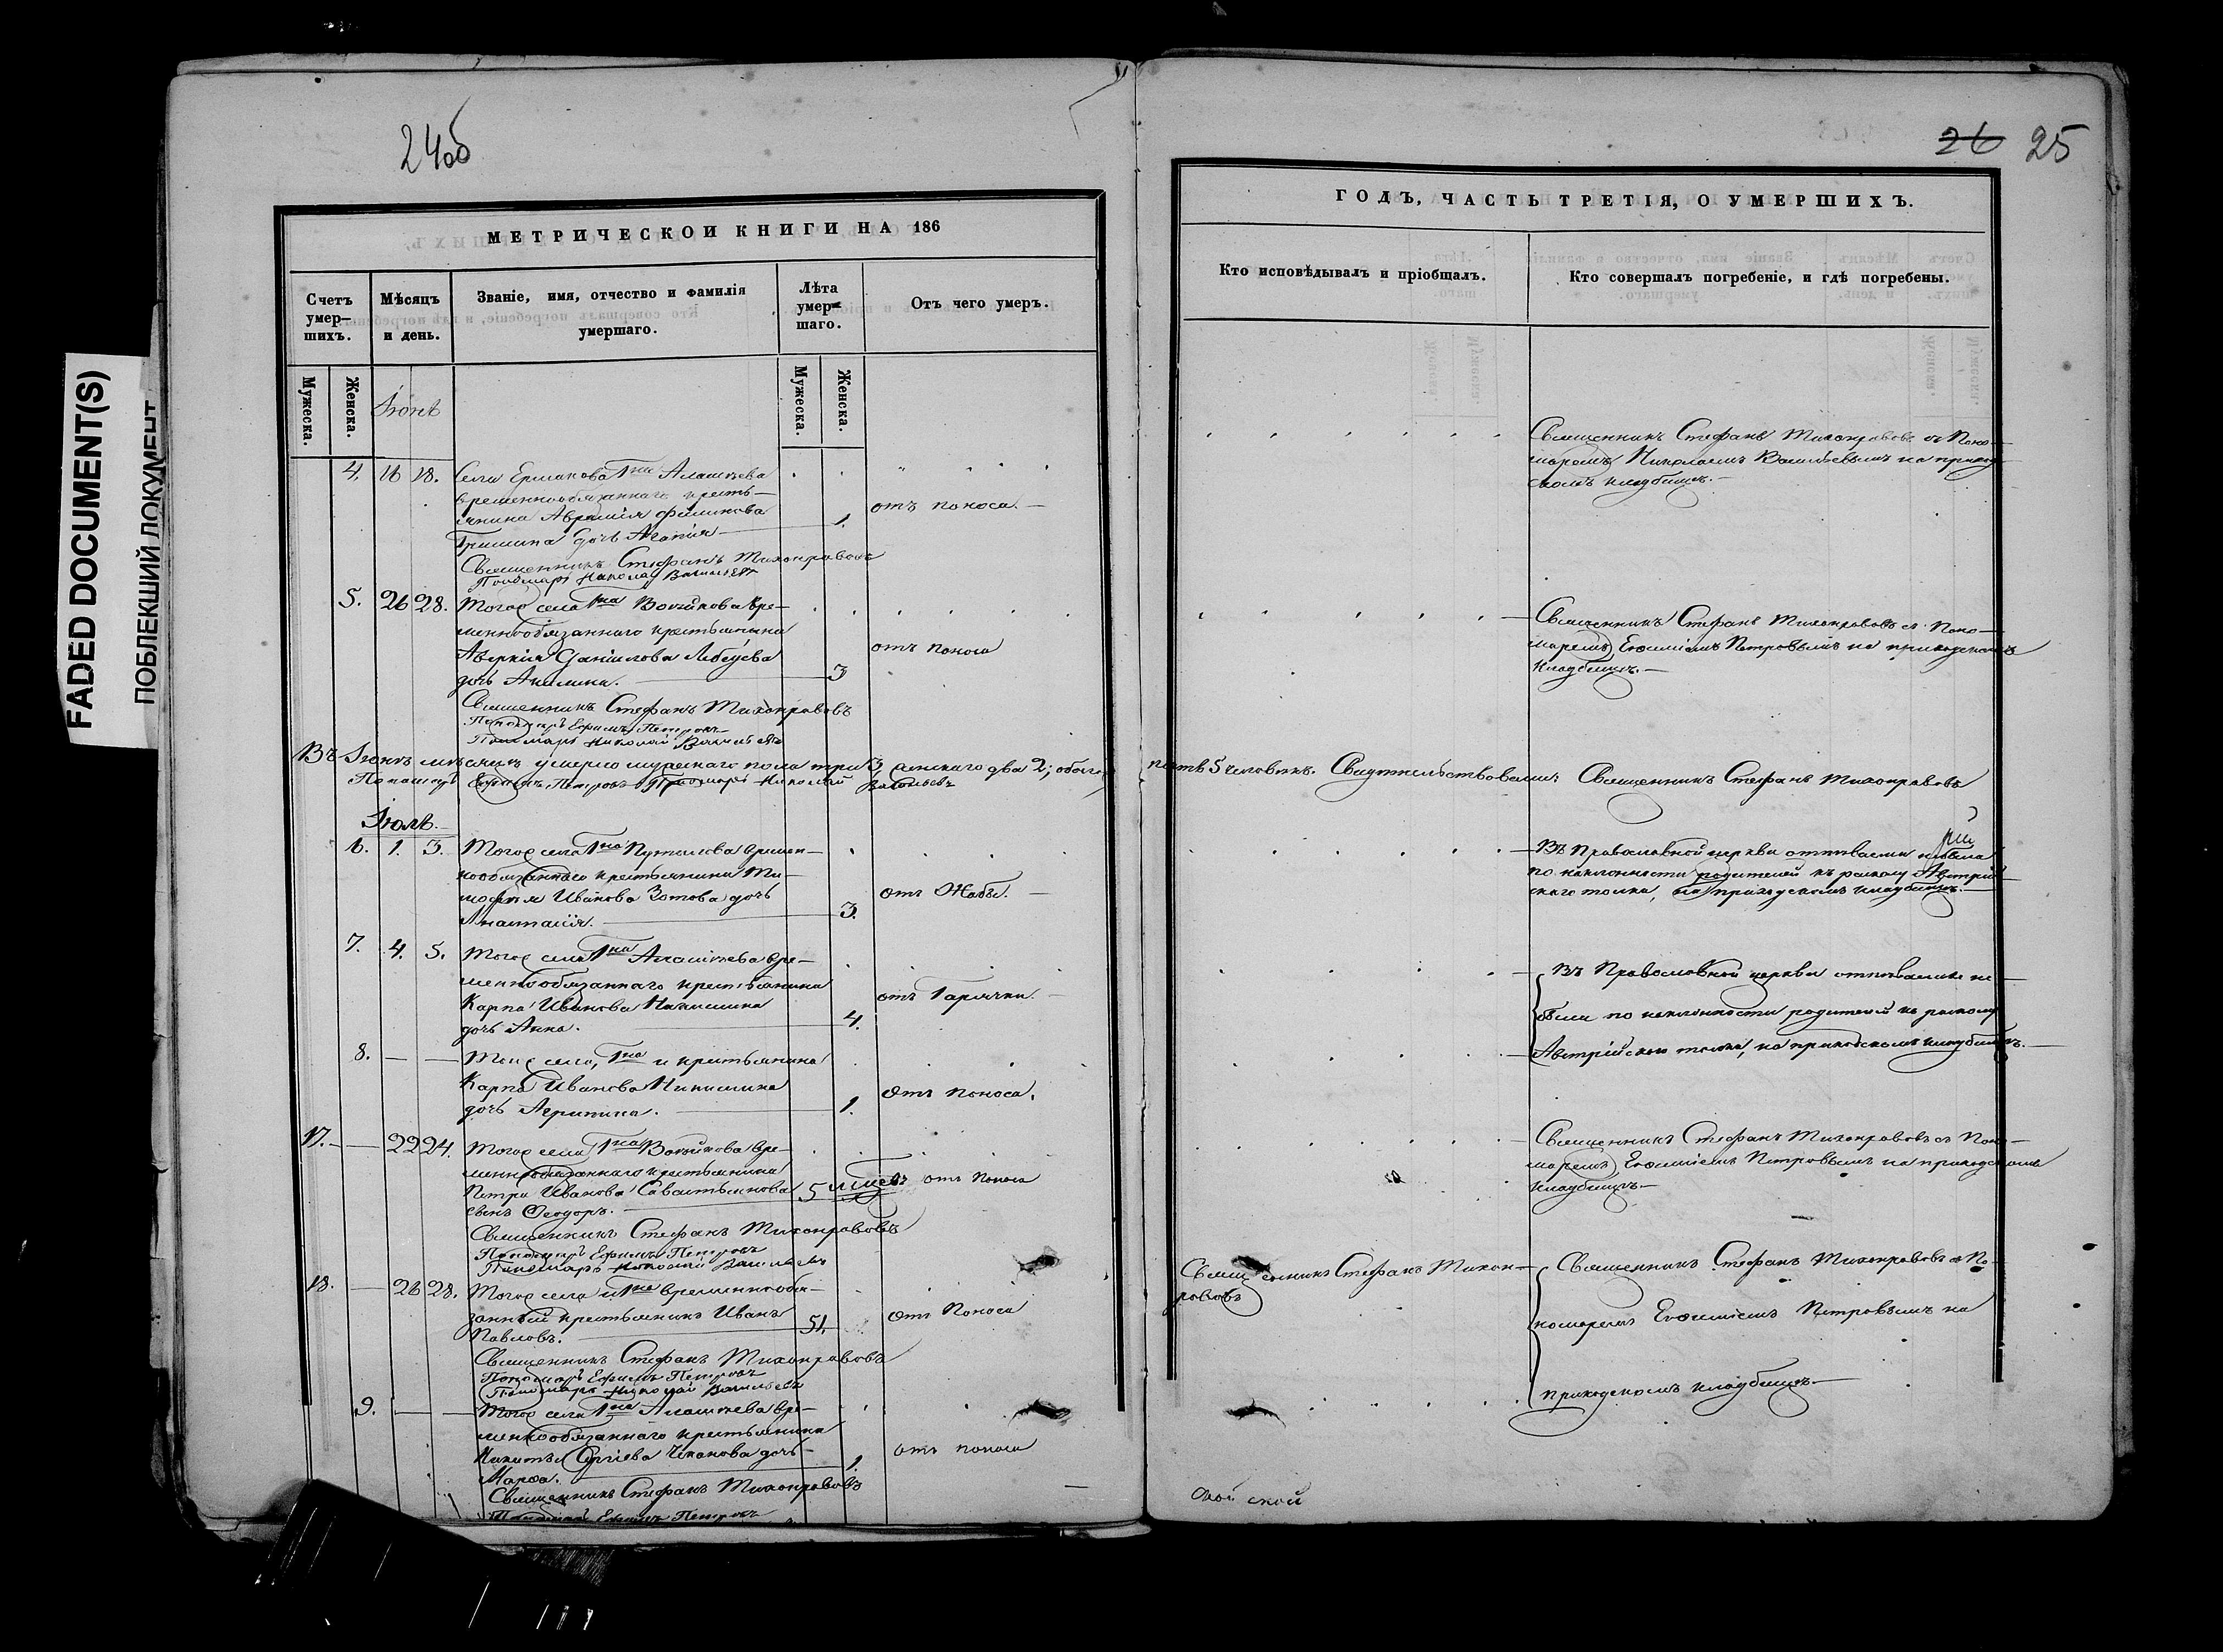 24об
МЕТРИЧЕСКОЙ КНИГИ НА 186
Счетъ умер-шихъ.
Мѣсяцъ и день.
Званіе, имя, отчество и фамилія умершаго.
Лѣта умер-шаго.
Отъ чего умеръ.
Мужеска.
Женска.
Мужеска.
Женска.
Іюнь
4. 16 18. Села Ермакова Гна Алашѣева
временнообязаннаго кресть-
янина Аврамія Филипова
Гришина дочь Агапія 1. отъ поноса.
Священникъ Стефанъ Тихонравовъ
Пономарь Николай Васильевъ
5. 26 28. Тогоже села Гна Воейкова вре-
меннообязаннаго крестьянина
Аверкія Данилова Лебедева
дочь Акилина. 3 отъ поноса
Священникъ Стефанъ Тихонравовъ
Пономарь Ефимъ Петровъ
Пономарь Николай Васильевъ
Въ Іюнѣ мѣсяцѣ умерло мужескаго пола три 3, женскаго два 2; обоего
Пономарь Ефимъ Петровъ Пономарь Николай Васильевъ
Іюль.
6. 1. 3. Тогоже села Гна Путилова времен-
нообязаннаго крестьянина Ти-
мофея Иванова Зотова дочь
Анастасія. 3. отъ Жабы.
7. 4. 5. Тогоже села Гна Алашѣева вре-
меннообязаннаго крестьянина
Карпа Иванова Никишина
дочь Анна. 4. отъ Горячки.
8. — — Тогоже села, Гна и крестьянина
Карпа Иванова Никишина
дочь Агрипина. 1. отъ поноса.
17. — 22 24. Тогоже села Гна Воейкова вре-
меннообязаннаго крестьянина
Петра Иванова Савастьянова 5 мѣсяц. отъ поноса
сынъ Ѳеодоръ.
Священникъ Стефанъ Тихонравовъ
Пономарь Ефимъ Петровъ
Пономарь Николай Васильевъ
18. — 26 28. Тогоже села и Гна временнообя-
занный крестьянинъ Иванъ
Павловъ. 51. отъ Поноса
Священникъ Стефанъ Тихонравовъ
Пономарь Ефимъ Петровъ
Пономарь Николай Васильевъ
9. — — Тогоже села Гна Алашѣева вре-
меннообязаннаго крестьянина
Никиты Сергіева Чеканова дочь
Марѳа. 1. отъ поноса
Священникъ Стефанъ Тихонравовъ
Пономарь Ефимъ Петровъ
26 25
ГОДЪ, ЧАСТЬ ТРЕТІЯ, О УМЕРШИХЪ.
Кто исповѣдывалъ и пріобщалъ.
Кто совершалъ погребеніе, и гдѣ погребены.
Священникъ Стефанъ Тихонравовъ съ Поно-
маремъ Николаемъ Васильевымъ на приход-
скомъ кладбищѣ.
Священникъ Стефанъ Тихонравовъ съ Поно-
маремъ Евѳиміемъ Петровымъ на приходскомъ
кладбищѣ.
пять 5 человѣкъ. Свидѣтельствовали: Священникъ Стефанъ Тихонравовъ
Въ Православной церкви отпѣваема небыла
по наклонности родителей къ расколу Австрій-
скаго толка, на приходскомъ кладбищѣ.
Въ Православной церкви отпѣваемы не
были по наклонности родителей къ расколу
Австрійскаго толка, на приходскомъ кладбищѣ.
Священникъ Стефанъ Тихонравовъ съ Поно-
маремъ Евѳиміемъ Петровымъ на приходскомъ
кладбищѣ.
Священникъ Стефанъ Тихон-
равовъ
Священникъ Стефанъ Тихонравовъ съ По-
номаремъ Евѳиміемъ Петровымъ на
приходскомъ кладбищѣ.
FADED DOCUMENT(S)
ПОБЛЕКШИЙ ДОКУМЕНТ